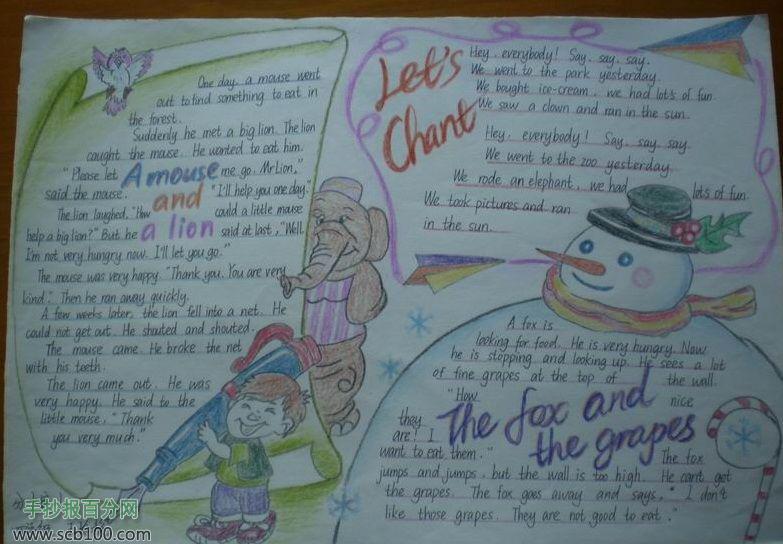 One day, a mouse went
out to find something to eat in
the forest.
Suddenly he met a big lion. The lion
caught the mouse. He wanted to eat him.
"Please let me go, Mr Lion,"
said the mouse. "I'll help you one day."
The lion laughed. "How could a little mouse
help a big lion?" But he said at last, "Well,
I'm not very hungry now. I'll let you go."
The mouse was very happy. "Thank you. You are very
kind." Then he ran away quickly.
A few weeks later, the lion fell into a net. He
could not get out. He shouted and shouted.
The mouse came. He broke the net
with his teeth.
The lion came out. He was
very happy. He said to the
little mouse, "Thank
you very much."
A mouse
and
a lion
Let's
Chant
Hey, everybody! Say, say, say.
We went to the park yesterday.
We bought ice-cream, we had lots of fun.
We saw a clown and ran in the sun.
Hey, everybody! Say, say, say.
We went to the zoo yesterday.
We rode an elephant, we had lots of fun.
We took pictures and ran
in the sun.
A fox is
looking for food. He is very hungry. Now
he is stopping and looking up. He sees a lot
of fine grapes at the top of the wall.
"How nice
they
are! I
want to eat them." The fox
jumps and jumps, but the wall is too high. He can't get
the grapes. The fox goes away and says, "I don't
like those grapes. They are not good to eat."
The fox and
the grapes
手抄报百分网
www.scb100.com